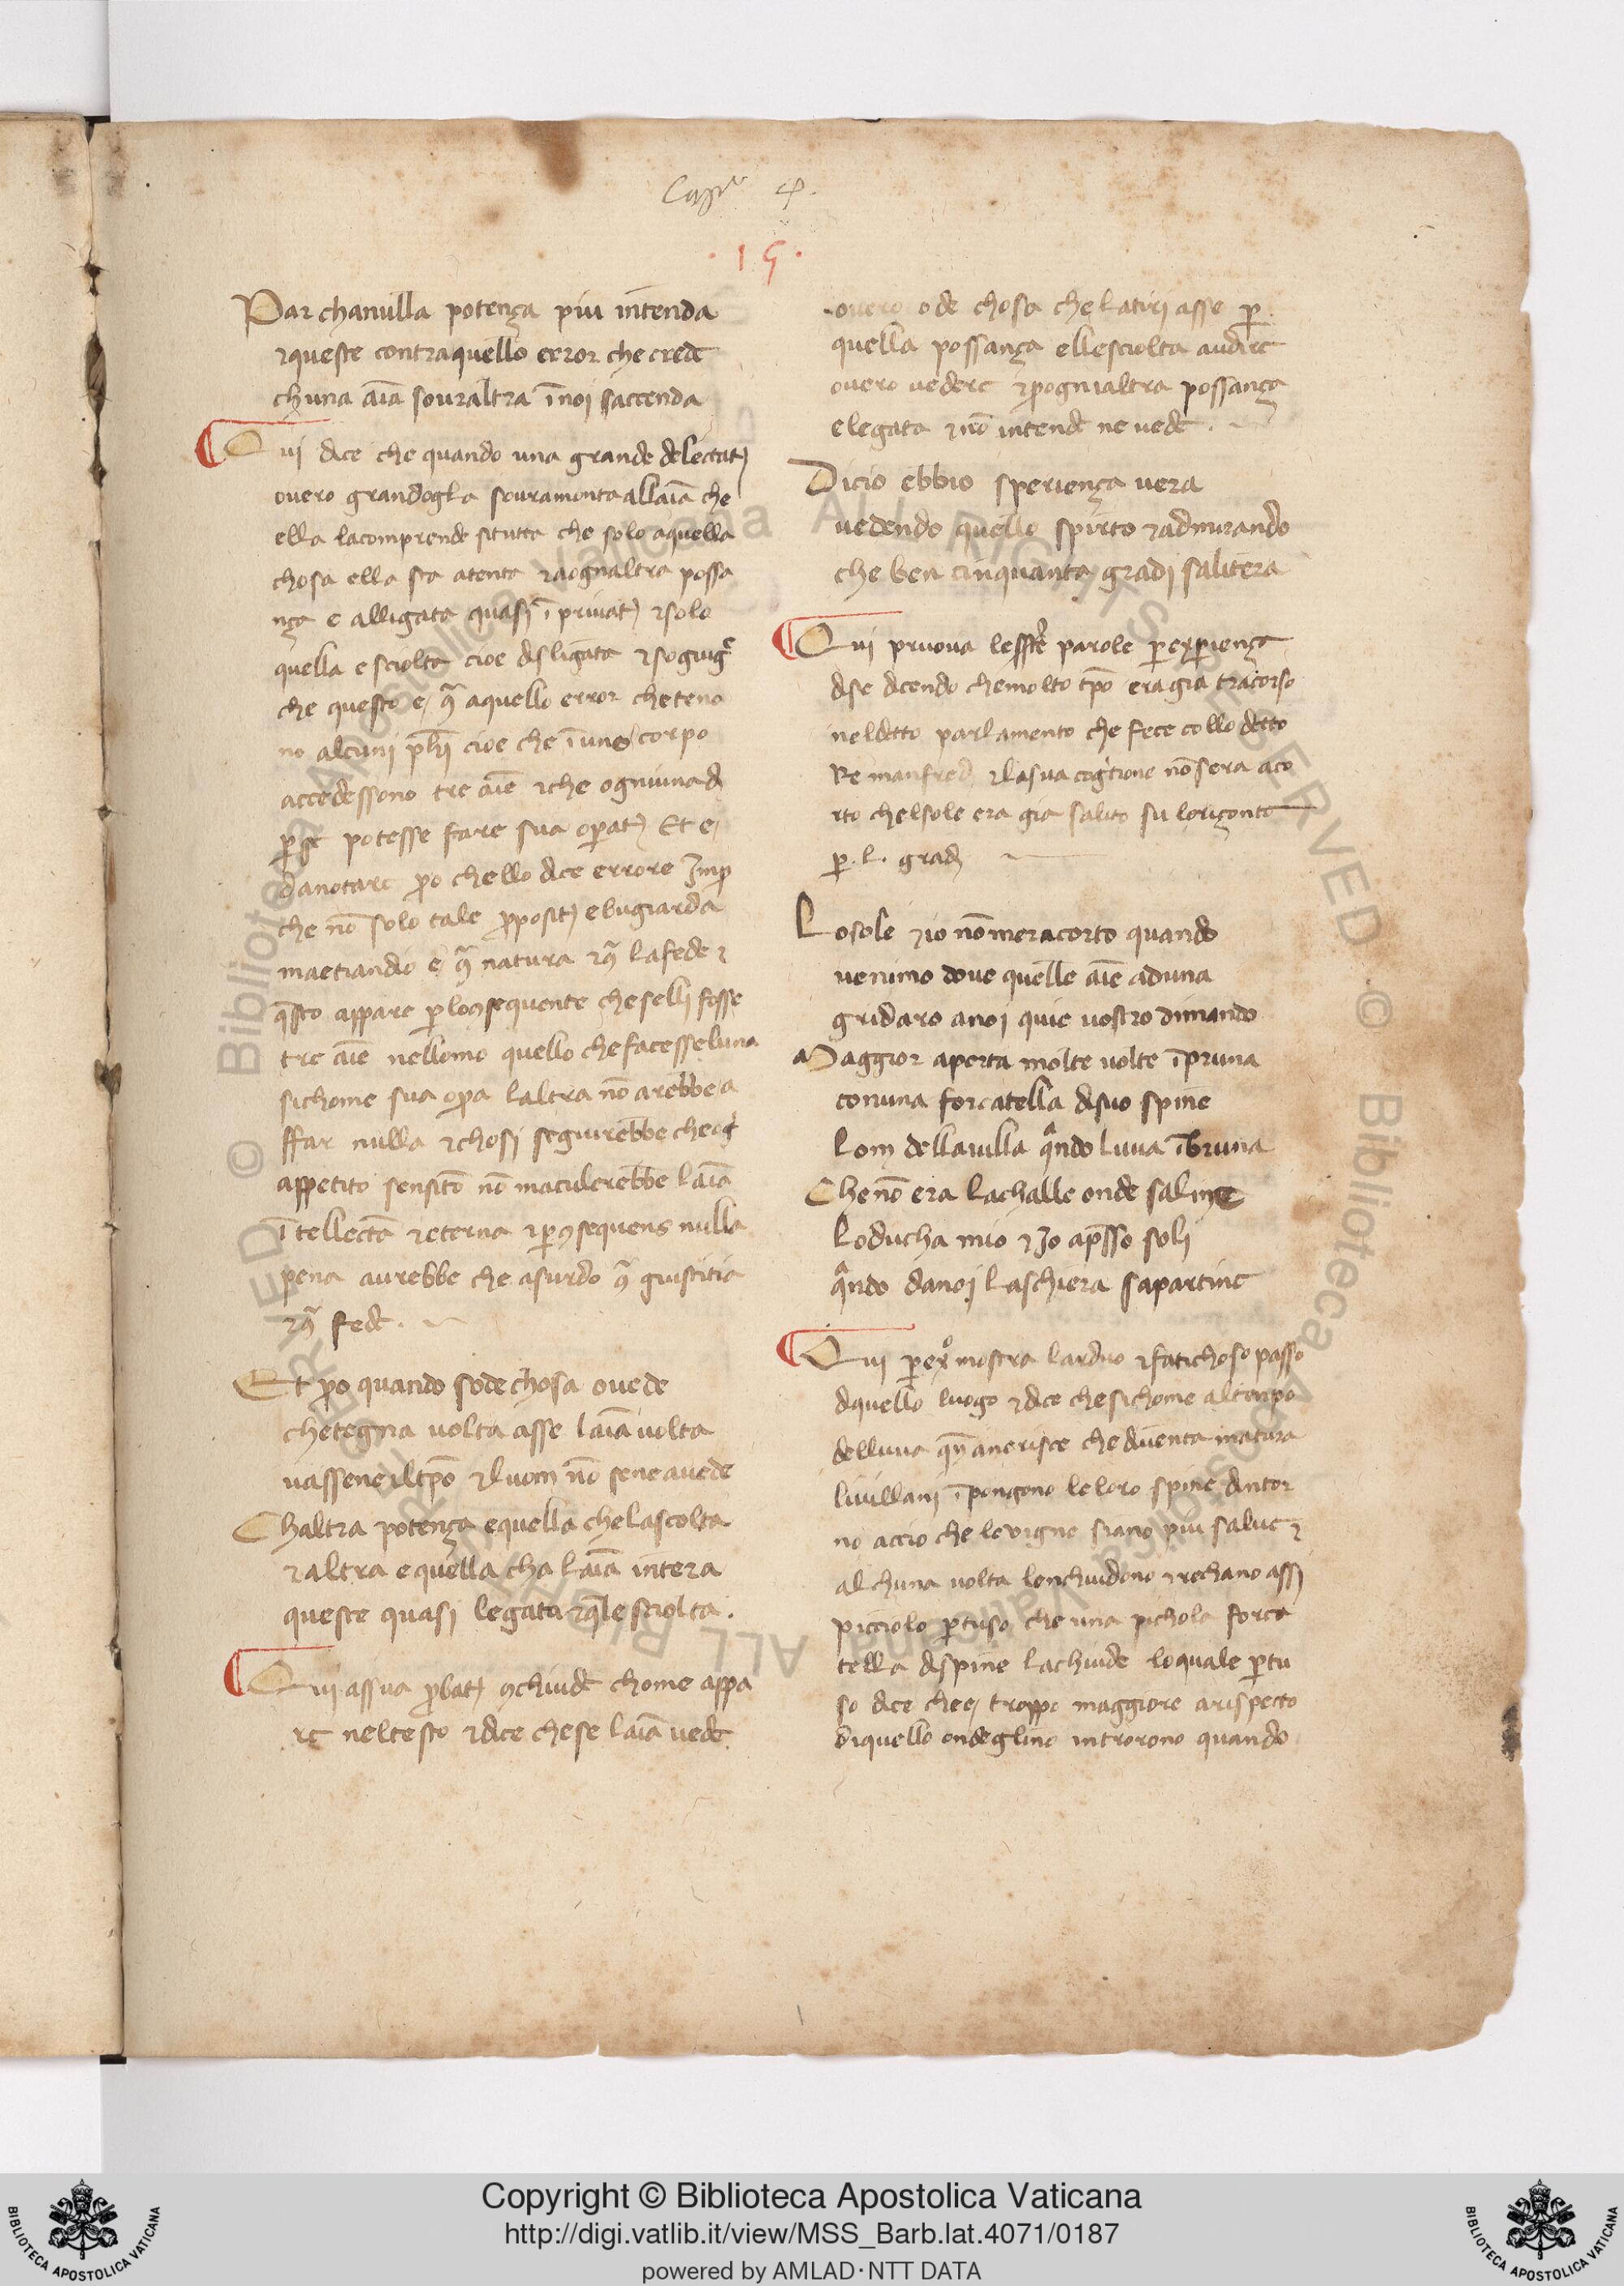 Cap° 4°.
.15.
Par chanulla potença piu intenda
⁊queste contraquello error che crede
chuna aīa souraltra īnoi saccenda
Qui dice che quando una grande delectatꝫ
ouero grandogla souramonta allaīa che
ella lacomprende situtta che solo aquella
chosa ella sta atenta ⁊aognaltra possa
nça e alligata quasi ī priuatꝫ ⁊solo
quella e sciolta cioe disligata ⁊sogiugē
che questo e ꝯᵃ aquello error che teno
no alcuni phī cioe che ī uno corpo
accedessono tre aīe ⁊che ogniuna di
ꝑ se potesse fare sua oꝑatꝫ Et e
da notare ꝑo che llo dice errore Imꝑ
che nō solo tale ꝓpositꝫ e bugiarda
maetiandio e ꝯᵃ natura ⁊ꝯᵃ lafede ⁊
q̄sto appare ꝑ loꝯsequente che selli fosse
tre aīe nellomo quello che facesse luna
sichome sua oꝑa laltra nō arebbe a
ffar nulla ⁊chosi seguirebbe che oḡ
appetito sensitō nō maculerebbe laīa
ītellectā ⁊eterna ⁊ꝑ ꝯsequens nulla
pena aurebbe che asurdo ꝯᵃ giustitia
⁊ꝯᵃ fede.
Et ꝑo quando sode chosa ouede
chetegna uolta asse laīa uolta
uassene iltꝑo ⁊luom nō seneauede
Chaltra potença equella chelascolta
⁊altra equella cha laīa intera
queste quasi legata ⁊q̄lle sciolta.
Qui assua ꝓbatꝫ ꝯchiude chome appa
re neltesto ⁊dice chese laīa uede
ouero ode chosa che latiri asse ꝑ
quella possança ellesciolta audire
ouero uedere ⁊ꝑognialtra possança
elegata ⁊nō intende ne uede.
Dicio ebbio speriença uera
uedendo quello spirto ⁊admirando
che ben cinquanta gradi salitera
Qui pruoua le parole ꝑ exꝑiença
dise dicendo chemolto tꝑo eragia tracorso
ineldetto parlamento che fece collo detto
Re manfredi ⁊lasua nōsera aco
rto chelsole era gia salito su loriçonte
ꝑ .l. gradi
Losole ⁊io nōmeracorto quando
uenimo doue quelle aīe aduna
gridaro anoi quie uostro dimando
Maggior aperta molte uolte īpruna
conuna forcatella disuo spine
lom dellauilla qᵃndo luua ībruna
Chenō era lachalle onde saline
loducha mio ⁊Io apsso soli
qᵃndo danoi laschiera sapartine
Qui ꝑ exº mostra larduo ⁊fatichoso passo
diquello luogo ⁊dice chesichome altempo
delluua qn̄ anerisce che diuenta matura
liuillani īpongono leloro spine dintor
no accio che leuigne siano piu salue ⁊
alchuna uolta lonchiudono ⁊rechano assi
picciolo ꝑtuso che una pichola forca
tella dispine lachiude loquale ꝑtu
so dice chee troppo maggiore arispecto
diquello ondeglino introrono quando
Copyright © Biblioteca Apostolica Vaticana
http://digi.vatlib.it/view/MSS_Barb.lat.4071/0187
powered by AMLAD·NTT DATA